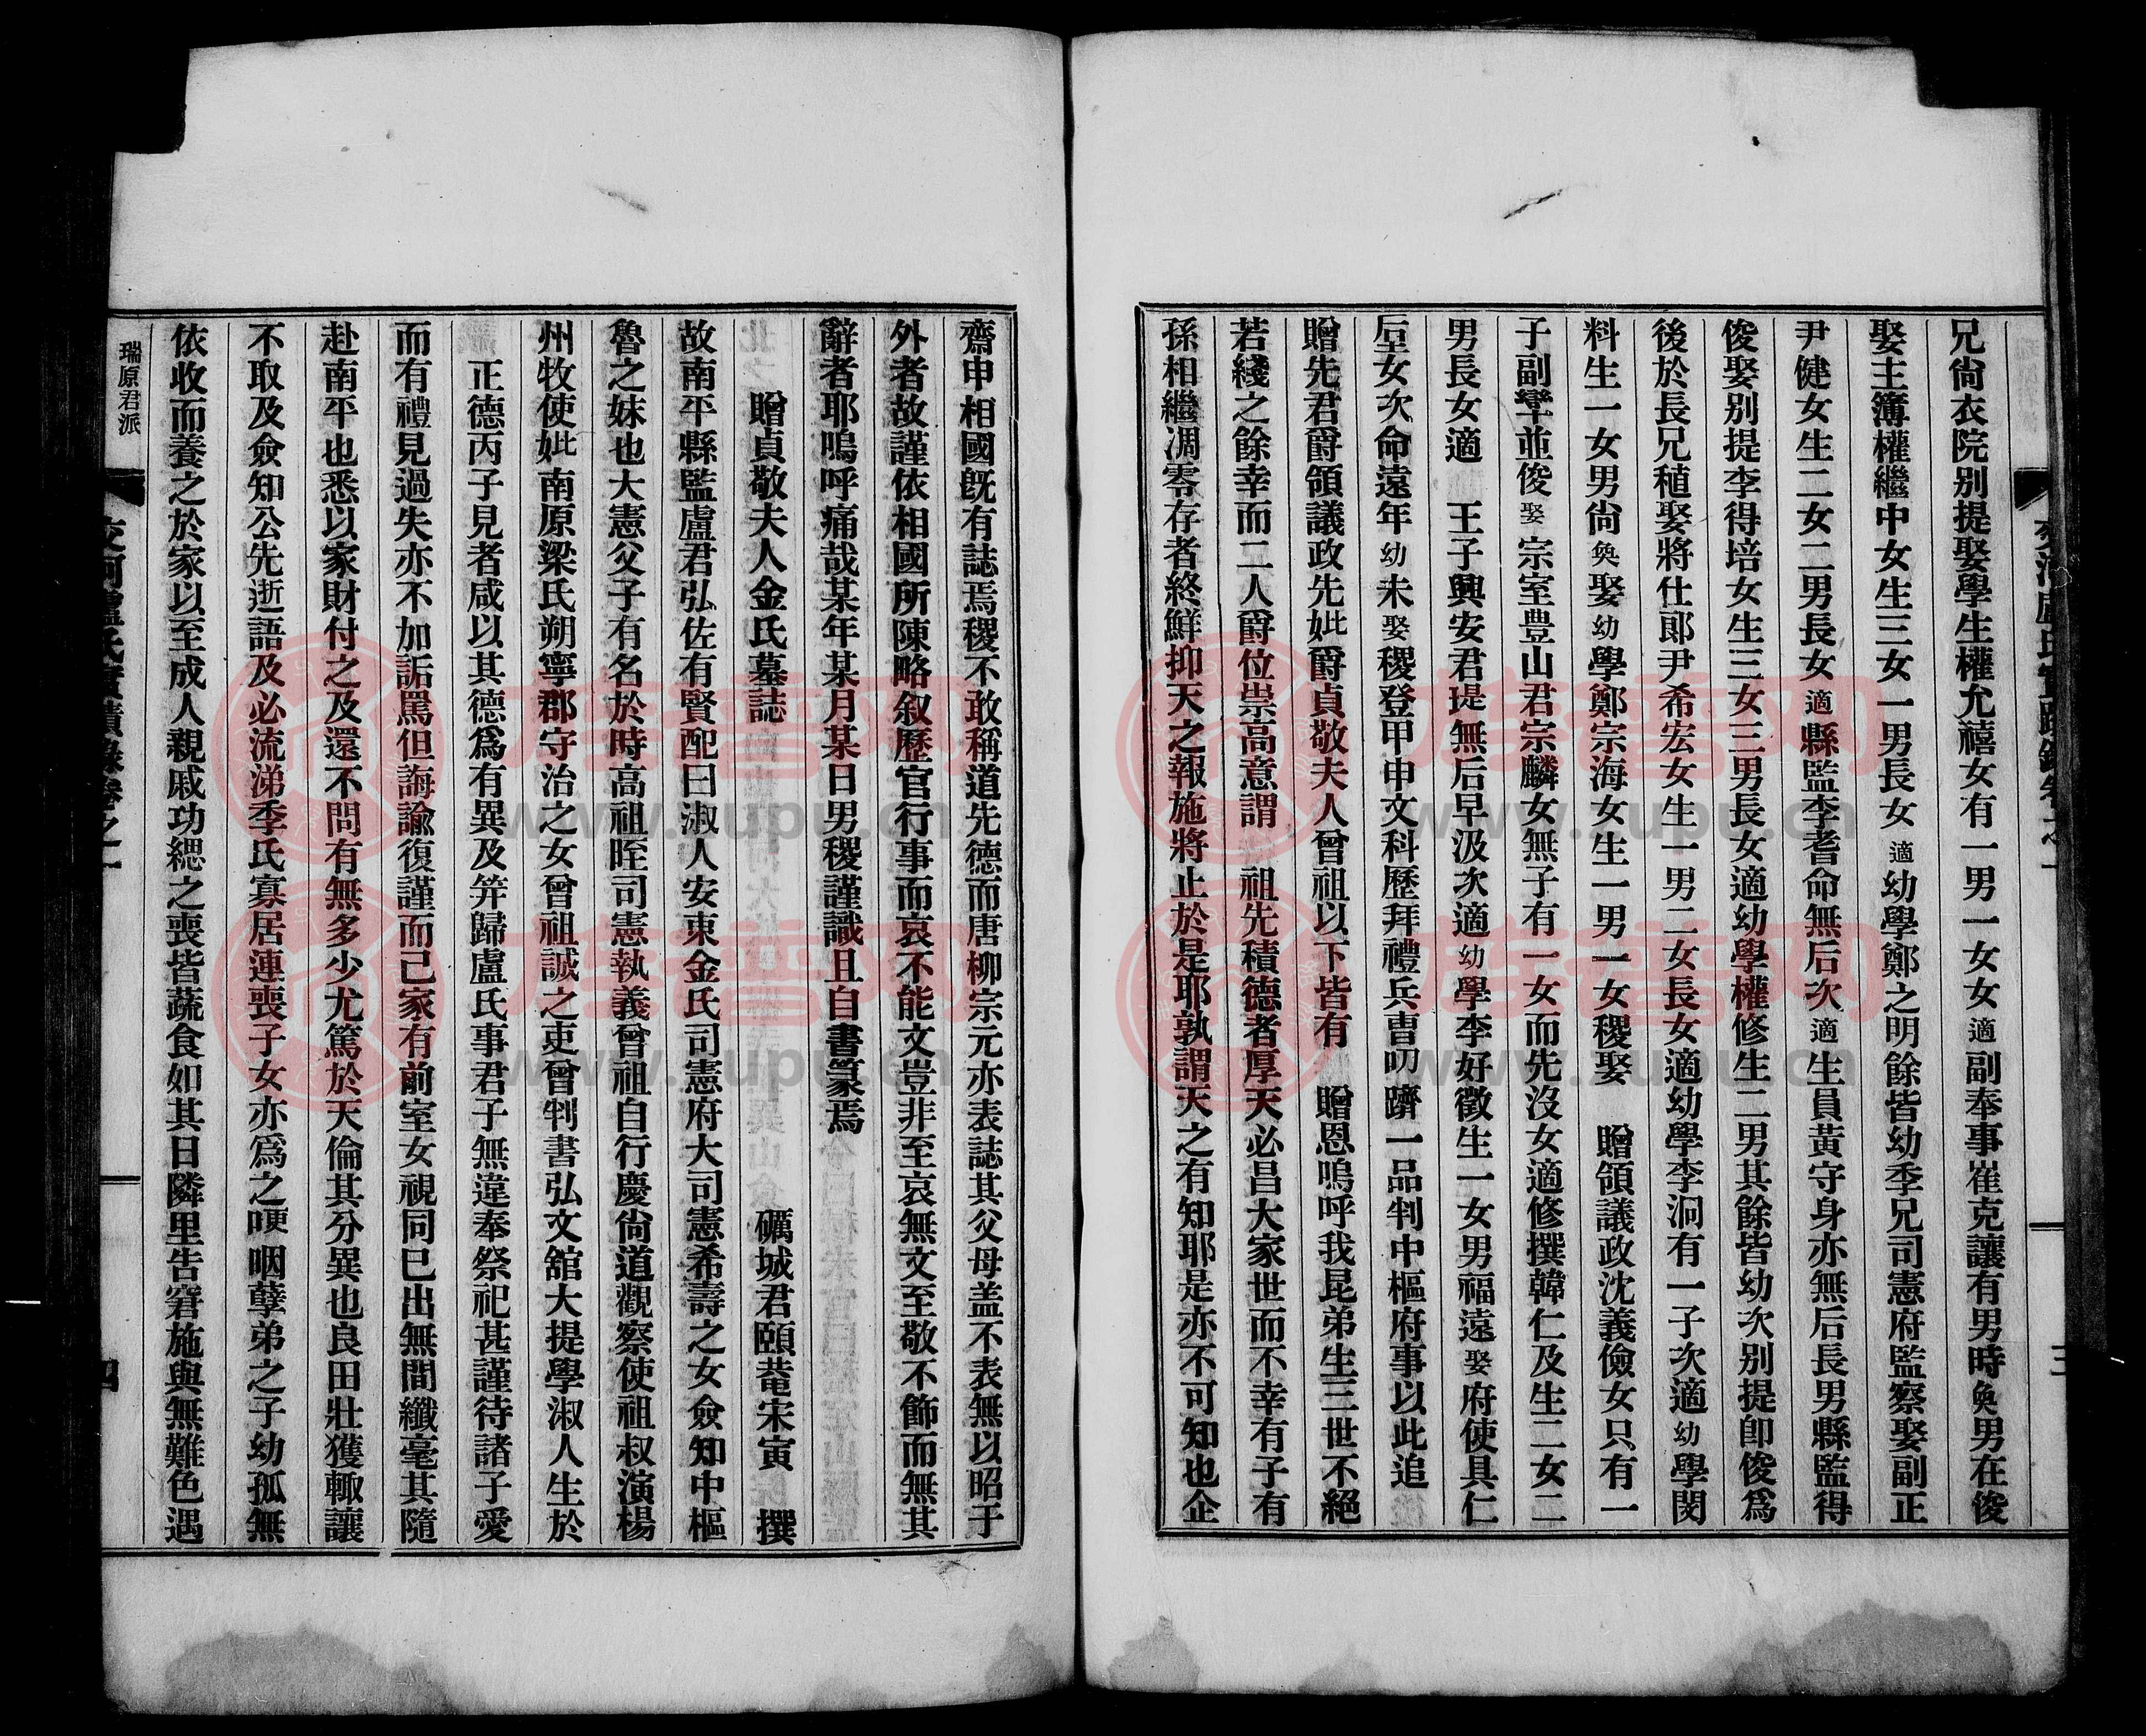 兄尙衣院別提娶學生權允禧女有一男一女女適副奉事崔克讓有男時奐男在俊
娶主簿權繼中女生三女一男長女適幼學鄭之明餘皆幼季兄司憲府監察娶副正
尹健女生二女二男長女適縣監李耆命無后次適生員黃守身亦無后長男縣監得
俊娶別提李得培女生三女三男長女適幼學權修生二男其餘皆幼次別提卽俊爲
後於長兄稙娶將仕郎尹希宏女生一男二女長女適幼學李泂有一子次適幼學閔
料生一女男尙奐娶幼學鄭宗海女生一男一女稷娶 贈領議政沈義儉女只有一
子副㝈並俊娶宗室豊山君宗麟女無子有一女而先沒女適修撰韓仁及生二女二
男長女適 王子興安君瑅無后早汲次適幼學李好徵生一女男福遠娶府使具仁
垕女次命遠年幼未娶稷登甲申文科歷拜禮兵曺叨躋一品判中樞府事以此追
贈先君爵領議政先妣爵貞敬夫人曾祖以下皆有 贈恩嗚呼我昆弟生三世不絕
若綫之餘幸而二人爵位崇高意謂 祖先積德者厚天必昌大家世而不幸有子有
孫相繼凋零存者終鮮抑天之報施將止於是耶孰謂天之有知耶是亦不可知也企
齋申相國旣有誌焉稷不敢稱道先德而唐柳宗元亦表誌其父母盖不表無以昭于
外者故謹依相國所陳略叙歷官行事而哀不能文豈非至哀無文至敬不飾而無其
辭者耶嗚呼痛哉某年某月某日男稷謹識且自書篆焉
贈貞敬夫人金氏墓誌 礪城君頤菴宋寅 撰
故南平縣監盧君弘佐有賢配曰淑人安東金氏司憲府大司憲希壽之女僉知中樞
魯之妹也大憲父子有名於時高祖晊司憲執義曾祖自行慶尙道觀察使祖叔演楊
州牧使妣南原梁氏朔寧郡守治之女曾祖誠之吏曾判書弘文舘大提學淑人生於
正德丙子見者咸以其德爲有異及笄歸盧氏事君子無違奉祭祀甚謹待諸子愛
而有禮見過失亦不加詬罵但誨諭復謹而己家有前室女視同巳出無間纖毫其隨
赴南平也悉以家財付之及還不問有無多少尤篤於天倫其分異也良田壯獲輙讓
不取及僉知公先逝語及必流涕季氏寡居連喪子女亦爲之哽咽孽弟之子幼孤無
依收而養之於家以至成人親戚功緦之喪皆蔬食如其日隣里告窘施與無難色遇
瑞原君派